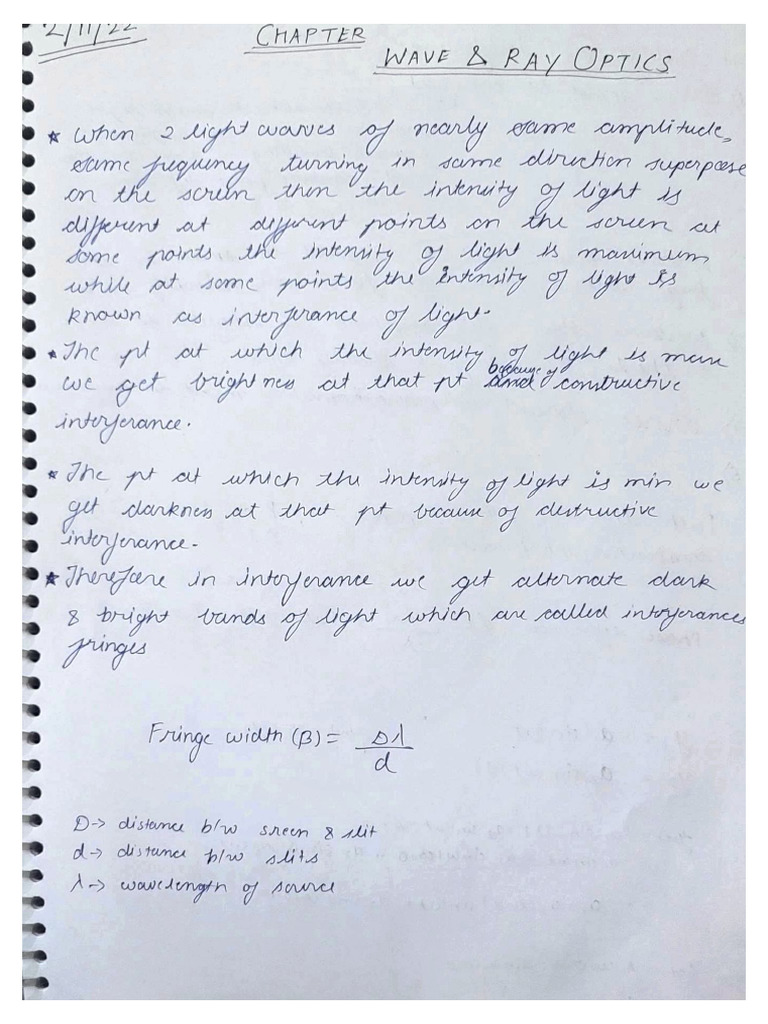 2/11/22
CHAPTER
WAVE & RAY OPTICS
* When 2 light waves of nearly same amplitude,
same fequency turning in same direction superpose
on the screen then the intensity of light is
different at different points on the screen at
some points the intensity of light is maximum
while at some points the intensity of light is
known as interferance of light.
* The pt at which the intensity of light is max
we get brightness at that pt because of constructive
interferance.
* The pt at which the intensity of light is min we
get darkness at that pt because of destructive
interferance.
* Therefore in interferance we get alternate dark
& bright bands of light which are called interferances
fringes
Fringe width (β) = Dλ
d
D→ distance b/w sreen & slit
d→ distance b/w slits
λ→ wavelength of source